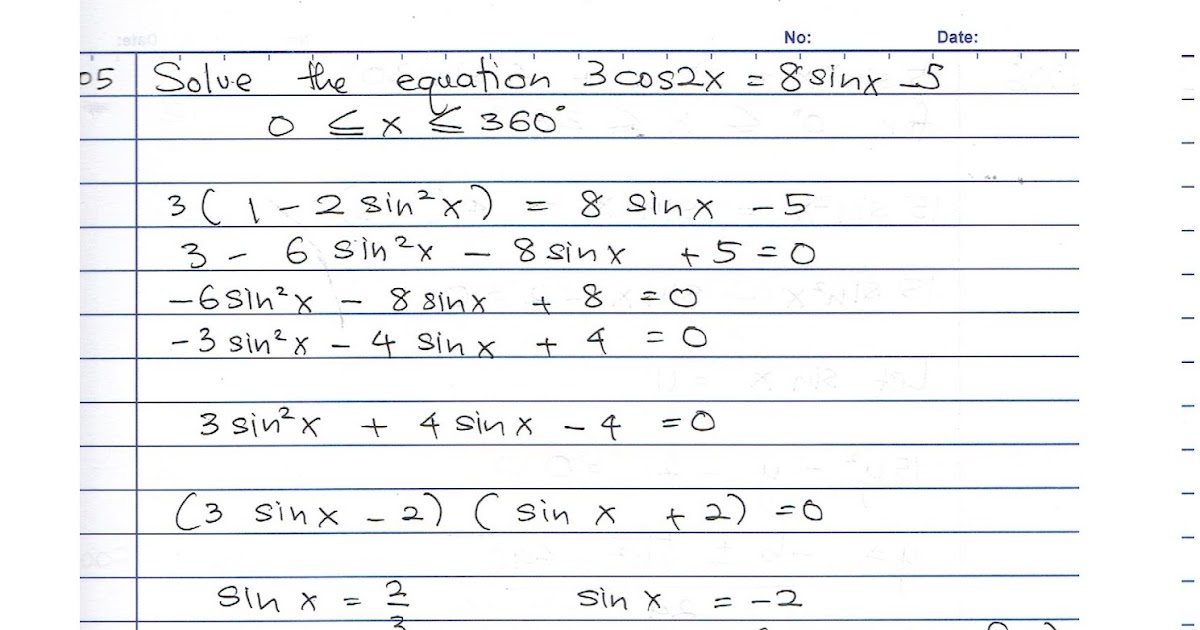 No: Date:
05 Solve the equation 3cos2x = 8sinx -5
0 ≤ x ≤ 360°
3( 1 - 2 sin²x ) = 8 sinx - 5
3 - 6 sin²x - 8 sinx + 5 = 0
-6sin²x - 8 sinx + 8 = 0
-3 sin²x - 4 sinx + 4 = 0
3 sin²x + 4 sinx - 4 = 0
(3 sinx - 2) ( sin x + 2) = 0
sin x = 2/3 sin x = -2